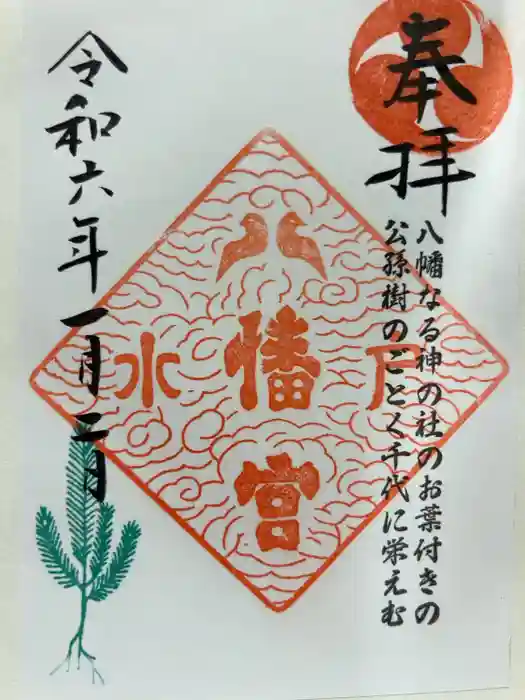 奉拝
八幡なる神の社のお葉付きの
公孫樹のごとく千代に栄えむ
水戸
八幡宮
令和六年一月二日